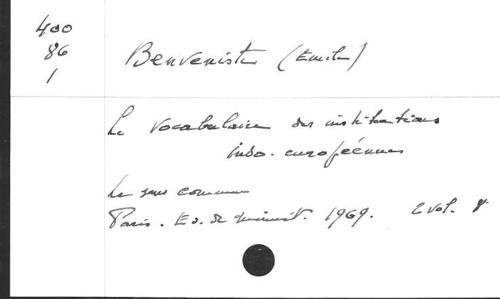 400
86
1
Benveniste (Emile)
Le vocabulaire des institutions
indo-européennes
Le sens commun
Paris. Ed. de minuit. 1969. 2 vol. 8